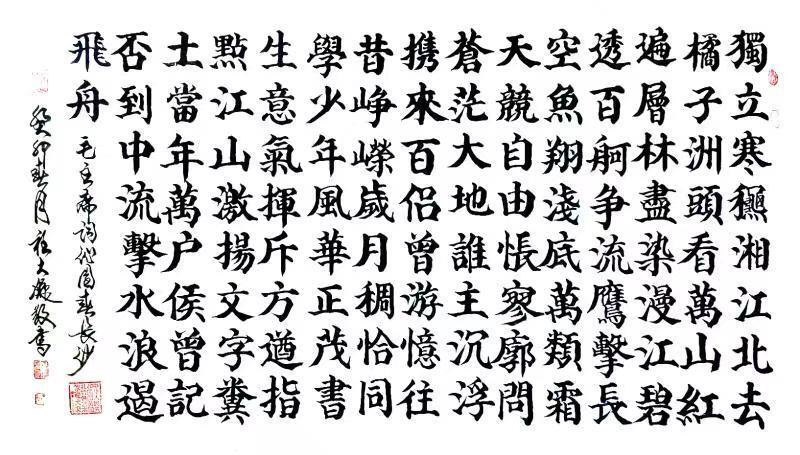 獨立寒穐湘江北去
橘子洲頭看萬山紅
遍層林盡染漫江碧
透百舸争流鷹擊長
空魚翔淺底萬類霜
天競自由悵寥廓問
蒼茫大地誰主沉浮
携來百侣曾游憶往
昔崢嶸歲月稠恰同
學少年風華正茂書
生意氣揮斥方遒指
點江山激揚文字糞
土當年萬户侯曾記
否到中流擊水浪遏
飛舟
毛主席詞沁園春長沙
癸卯春月敬書